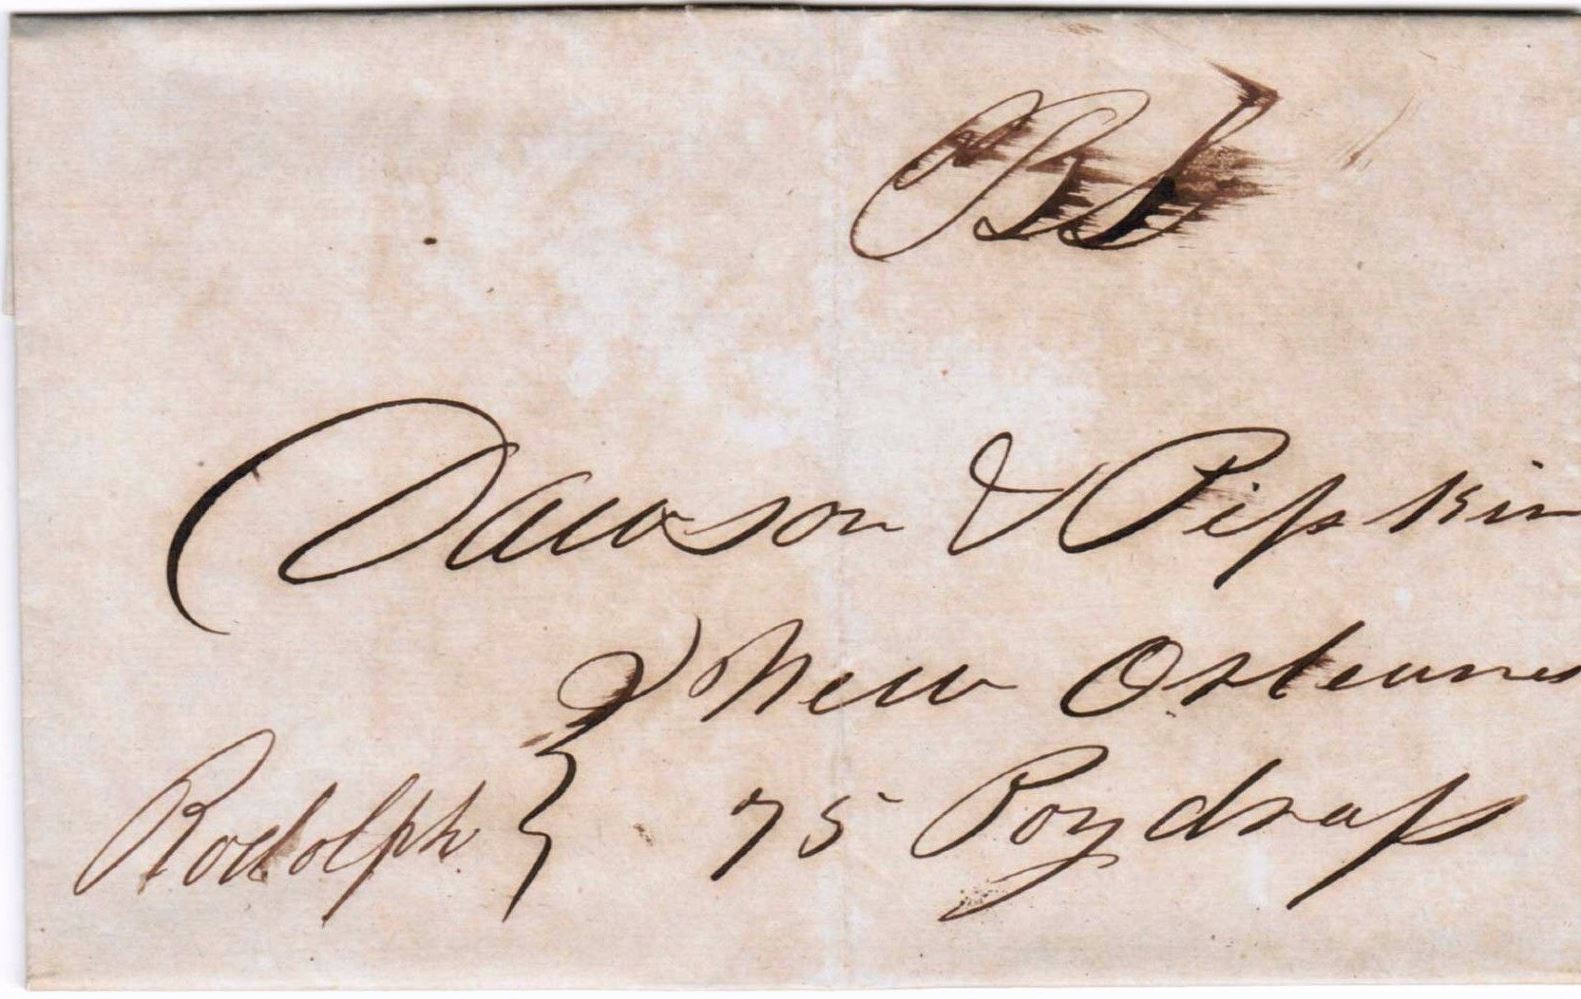 BL
Dawson & Pipkin
New Orleans
Rodolph } 75 Poydrass